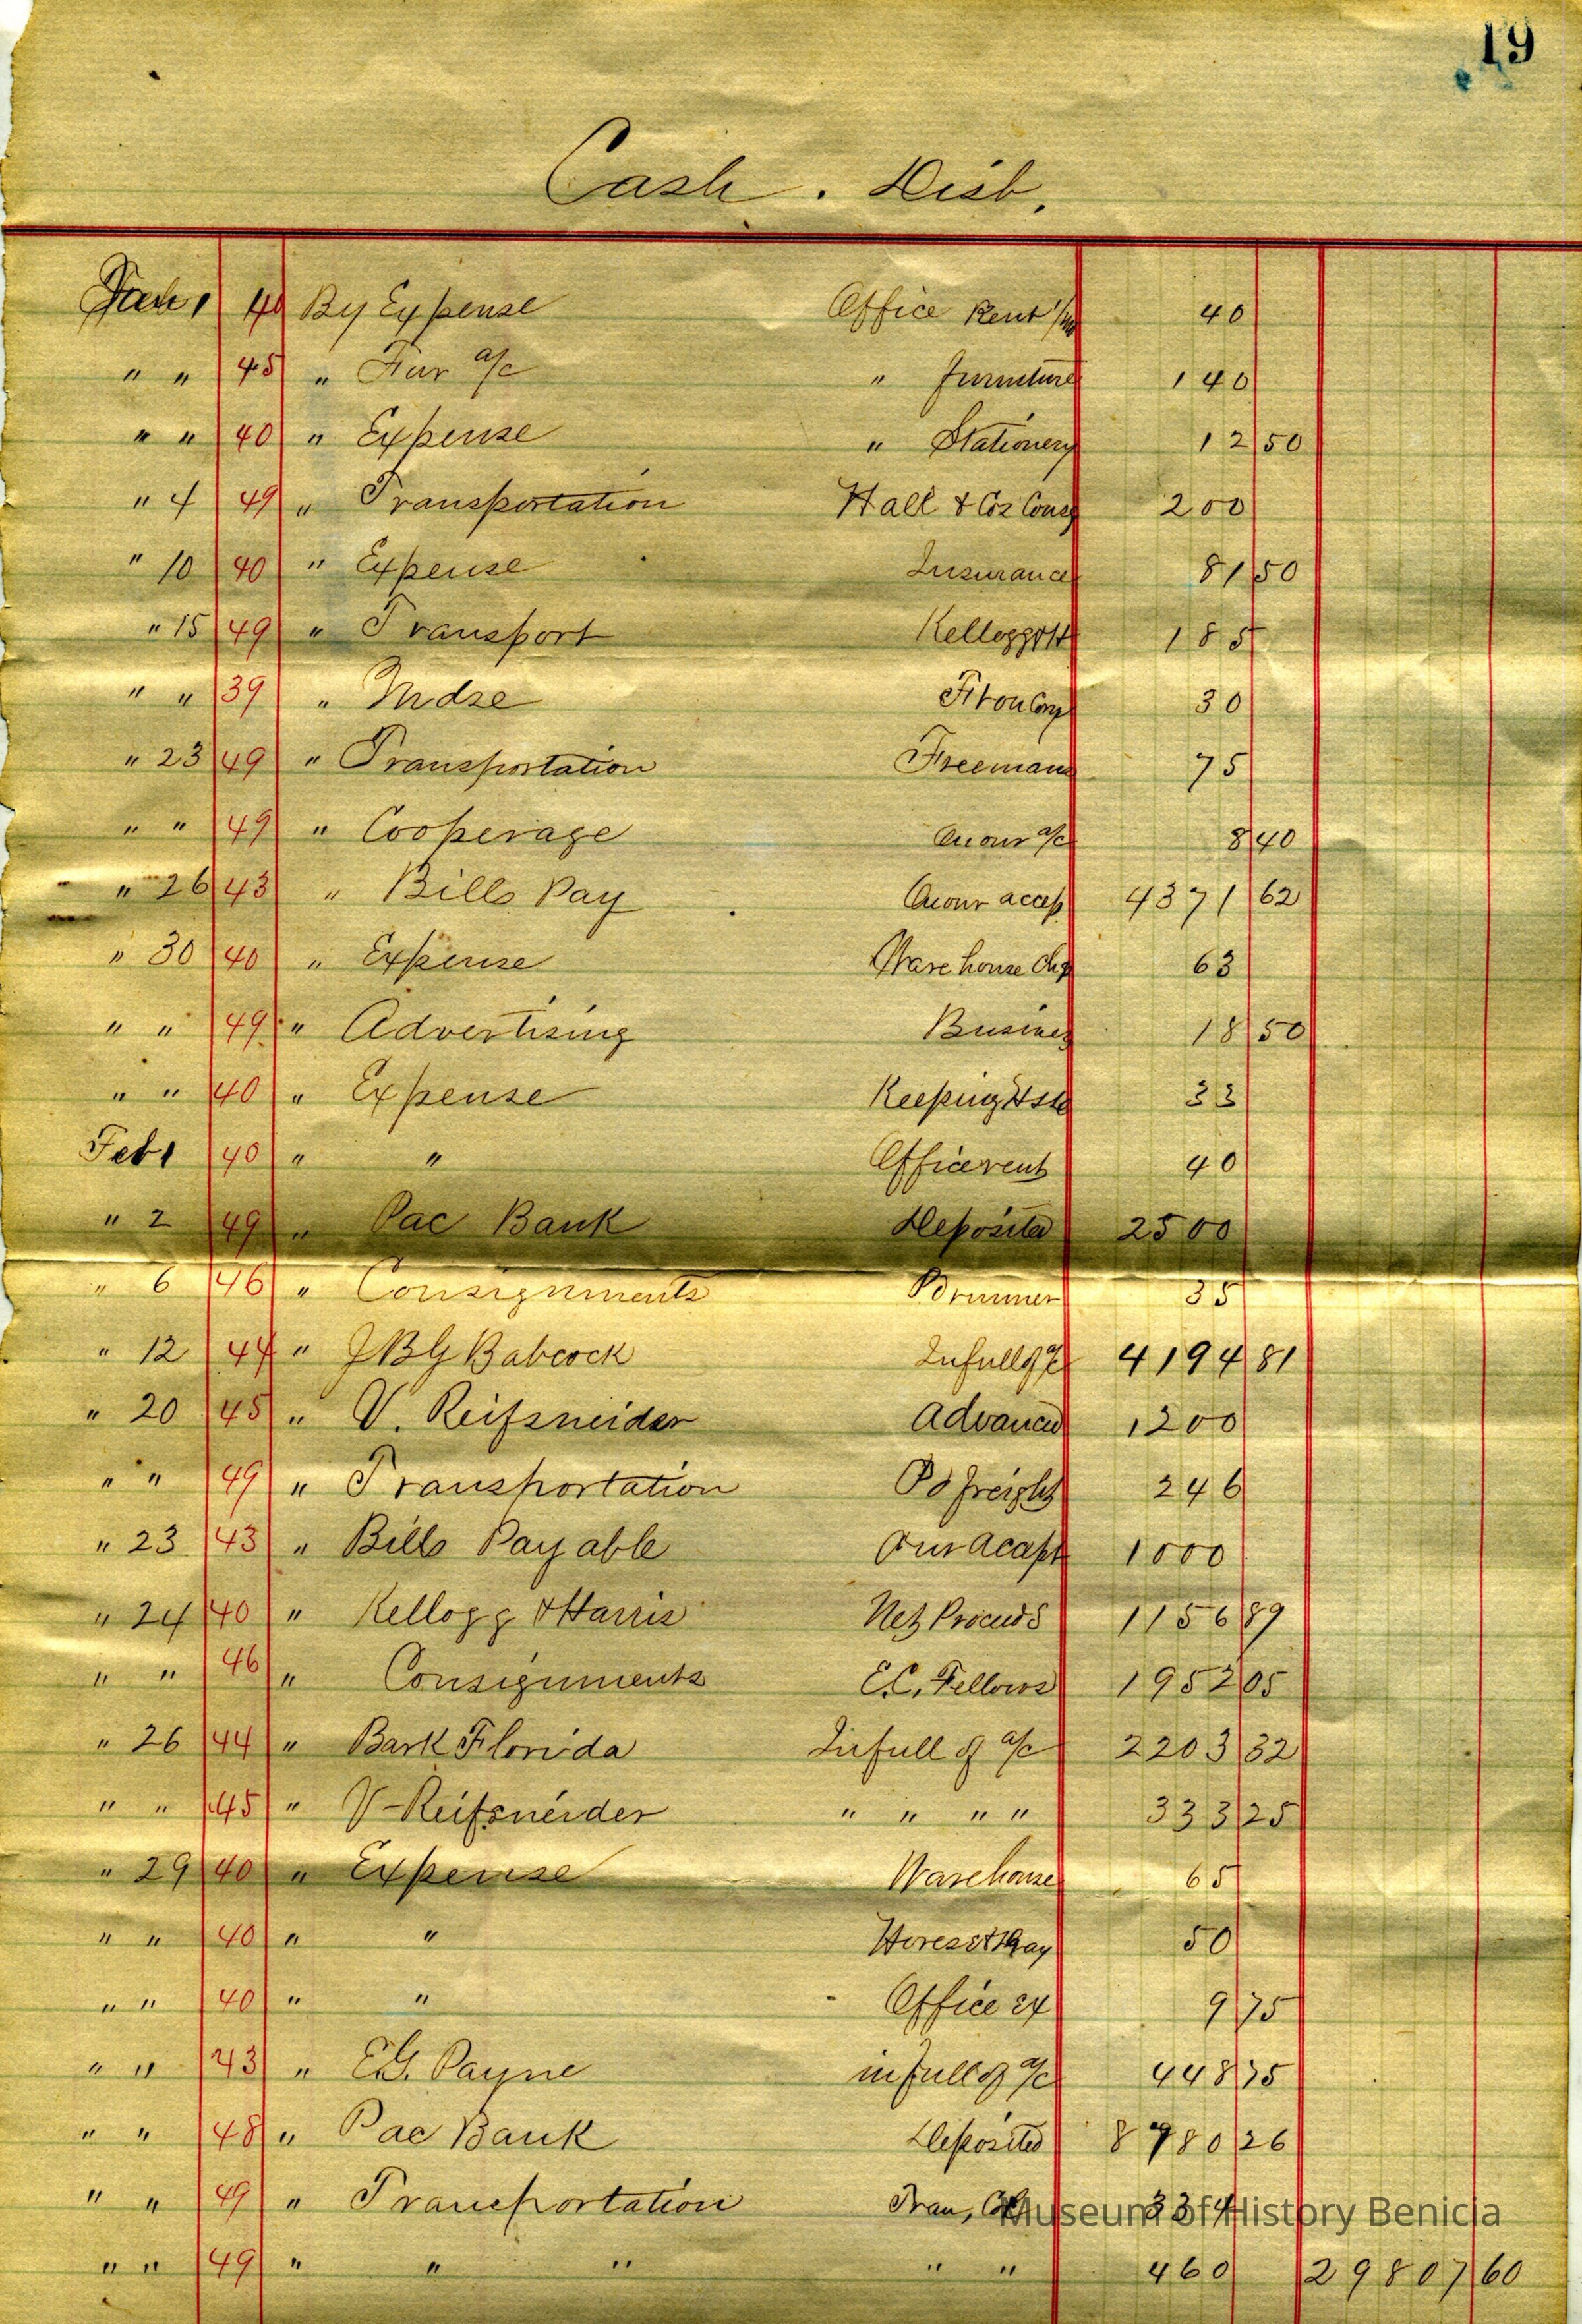 19
Cash. Disb.
Jan 1 40 By Expense Office Rent 1/mo 40
" " 45 " Fur a/c " furniture 140
" " 40 " Expense " Stationery 12 50
" 4 49 " Transportation Hall & Cos Cons 200
" 10 40 " Expense Insurance 81 50
" 15 49 " Transport Kellogg & H 185
" " 39 " Mdse 30
" 23 49 " Transportation Freemans 75
" " 49 " Cooperage On our a/c 8 40
" 26 43 " Bills Pay On our accep 4371 62
" 30 40 " Expense Ware house Chg 63
" " 49 " Advertising Business 18 50
" " 40 " Expense Keeping 33
Feb 1 40 " " Office rent 40
" 2 49 " Pac Bank Deposited 2500
" 6 46 " Consignments 35
" 12 44 " J B G Babcock In full of a/c 4194 81
" 20 45 " V. Reifsneider Advanced 1200
" " 49 " Transportation Pd freight 246
" 23 43 " Bills Payable Our Accept 1000
" 24 40 " Kellogg & Harris Net Proceeds 1156 89
" " 46 " Consignments E.C. Fellows 1952 05
" 26 44 " Bark Florida In full of a/c 2203 32
" " 45 " V Reifsneider " " " " 333 25
" 29 40 " Expense Warehouse 65
" " 40 " " 50
" " 40 " " Office Ex 9 75
" " 43 " E.G. Payne in full of a/c 448 75
" " 48 " Pac Bank Deposited 8780 26
" " 49 " Transportation Tran, Co 334
" " 49 " " " " " 460 29807 60
Museum of History Benicia